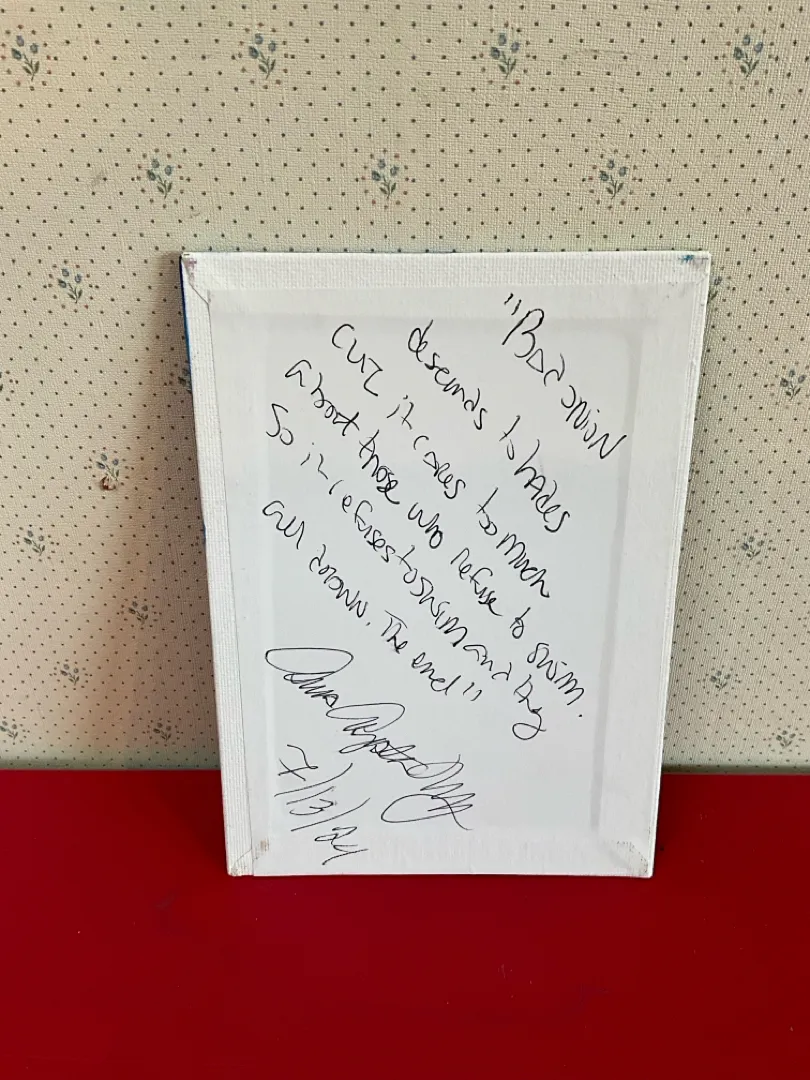 "Bad onion
desends to hades
cuz it cares to much
about those who refuse to swim.
So it refuses to swim and they
all drown. The end"
7/13/24